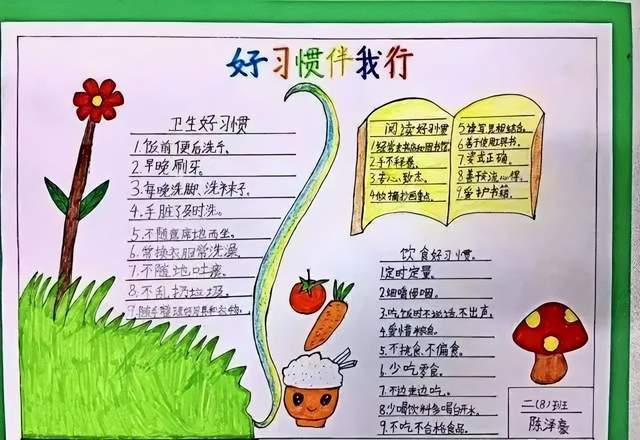 好习惯伴我行
卫生好习惯
1.饭前便后洗手。
2.早晚刷牙。
3.每晚洗脚、洗袜子。
4.手脏了及时洗。
5.不随意席地而坐。
6.常换衣服常洗澡。
7.不随地吐痰。
8.不乱扔垃圾。
阅读好习惯
1.经常去书店和图书馆
2.手不释卷。
3.专心致志。
4.做摘抄画重点。
5.读写思相结合。
6.善于使用工具书。
7.姿式正确。
8.善于交流心得。
9.爱护书籍。
饮食好习惯。
1.定时定量。
2.细嚼慢咽。
3.吃饭时不说话,不出声。
4.爱惜粮食。
5.不挑食、不偏食。
6.少吃零食。
7.不边走边吃。
8.少喝饮料多喝白开水。
9.不吃不合格食品。
二(8)班
陈泽豪